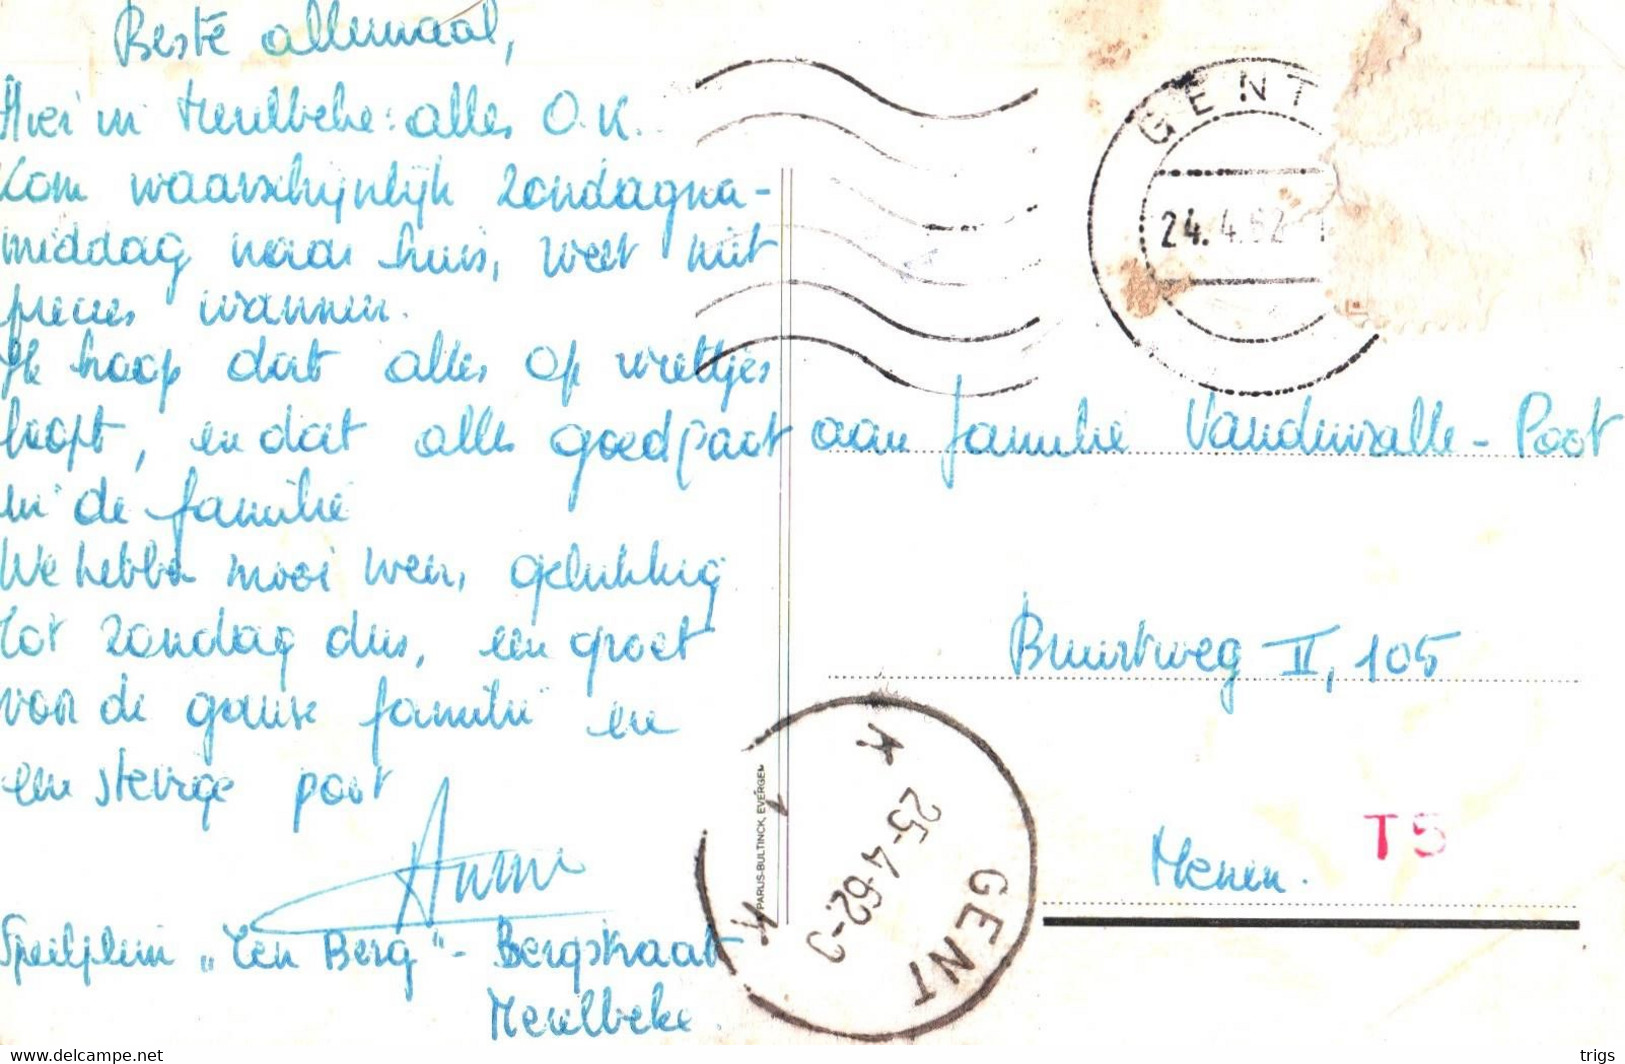 Beste allemaal,
Hier in Merelbeke: alles O.K.
Kom waarschijnlijk zondagna-
middag naar huis, weet niet
precies wanneer.
Ik hoop dat alles op wieltjes
loopt, en dat alles goed gaat
in de familie
We hebben mooi weer, gelukkig
Tot zondag dus, een groet
voor de ganse familie en
een stevige poot
Anne
Speelplein "Ten Berg" - Bergstraat
Merelbeke.
GENT
24.4.62
aan familie Vandewalle - Poot
Buurtweg II, 105
Menen.
T5
PARIJS-BULTINCK, EVERGEM
GENT
25-4-62
www.delcampe.net
trigs